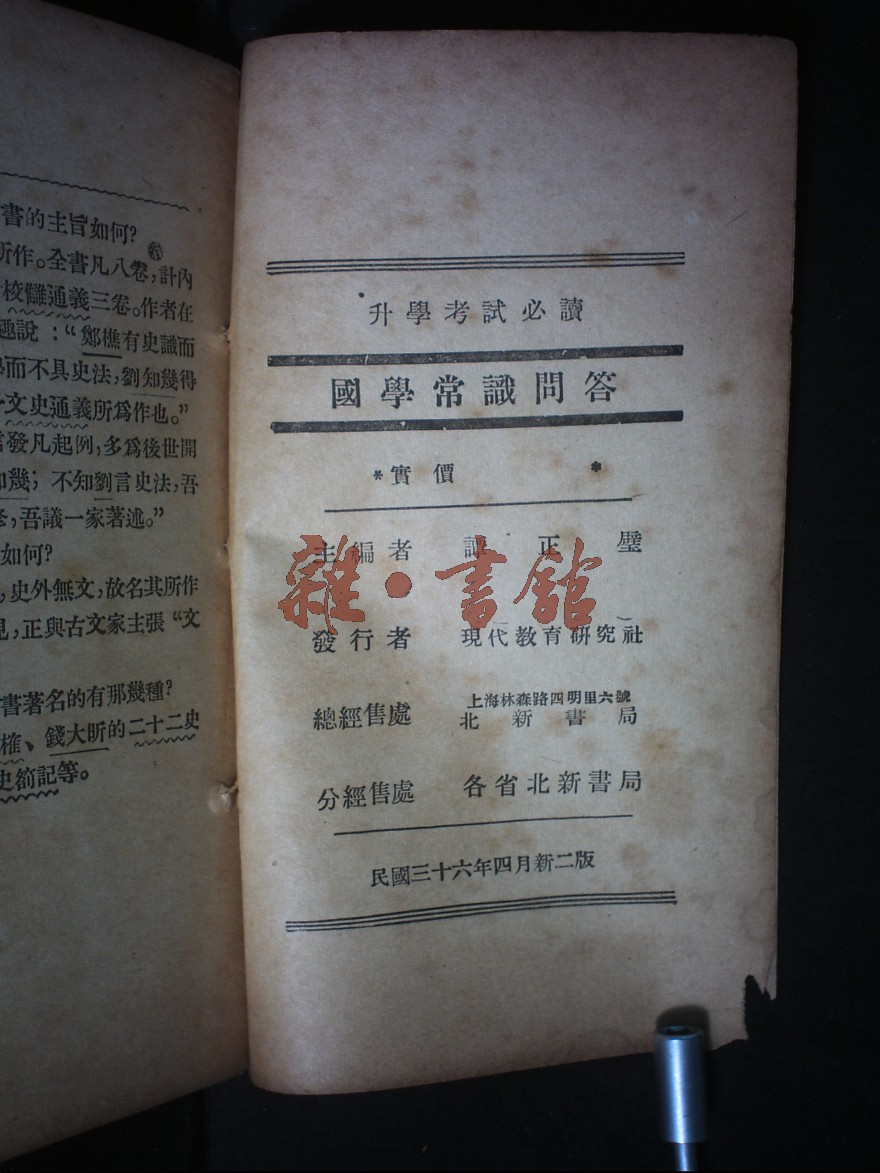 書的主旨如何?
所作。全書凡八卷,計內
校讎通義三卷。作者在
說:“鄭樵有史識而
學而不具史法,劉知幾得
文史通義所爲作也。”
發凡起例,多爲後世開
知幾;不知劉言史法,吾
,吾議一家著述。”
如何?
,史外無文,故名其所作
見,正與古文家主張“文
書著名的有那幾種?
榷、錢大昕的二十二史
史箚記等。
升學考試必讀
國學常識問答
*實價 *
主編者 譚正璧
發行者 現代教育研究社
總經售處 上海林森路四明里六號
北新書局
分經售處 各省北新書局
民國三十六年四月新二版
雜·書館